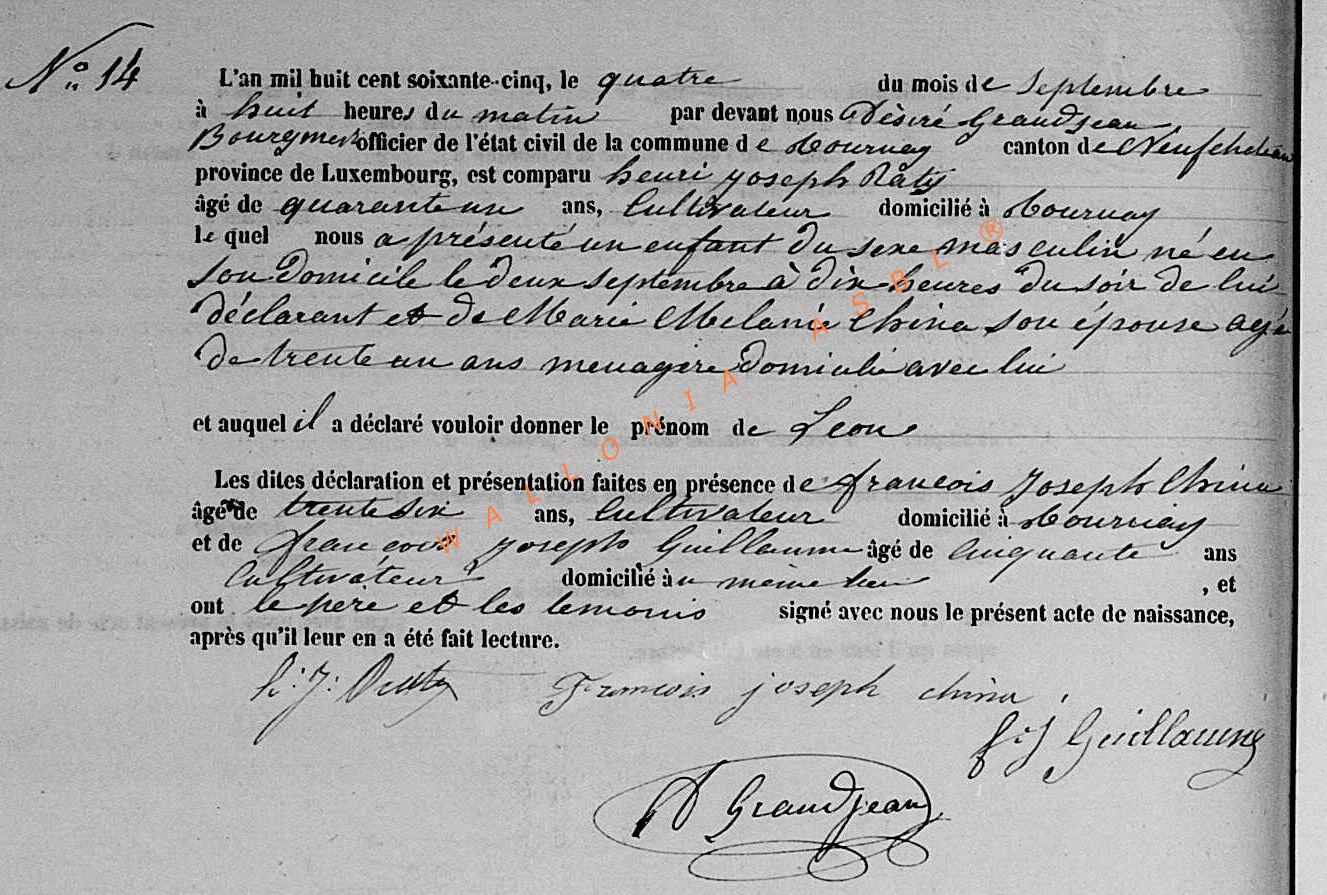 N° 14
L'an mil huit cent soixante-cinq, le quatre du mois de Septembre
à huit heures du matin par devant nous Désiré Grandjean
Bourgmest officier de l'état civil de la commune de Tournay canton de Neufchateau
province de Luxembourg, est comparu henri joseph Râty
âgé de quarante un ans, Cultivateur domicilié à Tournay
le quel nous a présenté un enfant du sexe masculin né en
son domicile le deux septembre à dix heures du soir de lui
déclarant et de Marie Melanie China son épouse agée
de trente un ans menagère domicilié avec lui
et auquel il a déclaré vouloir donner le prénom de Leon
Les dites déclaration et présentation faites en présence de francois Joseph China
âgé de trente six ans, Cultivateur domicilié à Tournay
et de francois joseph Guillaume âgé de Cinquante ans
Cultivateur domicilié àu même lieu , et
ont le père et les temoins signé avec nous le présent acte de naissance,
après qu'il leur en a été fait lecture.
h. j. Raty François joseph china
f. j Guillaume
D Grandjean
WALLONIA ASBL ®